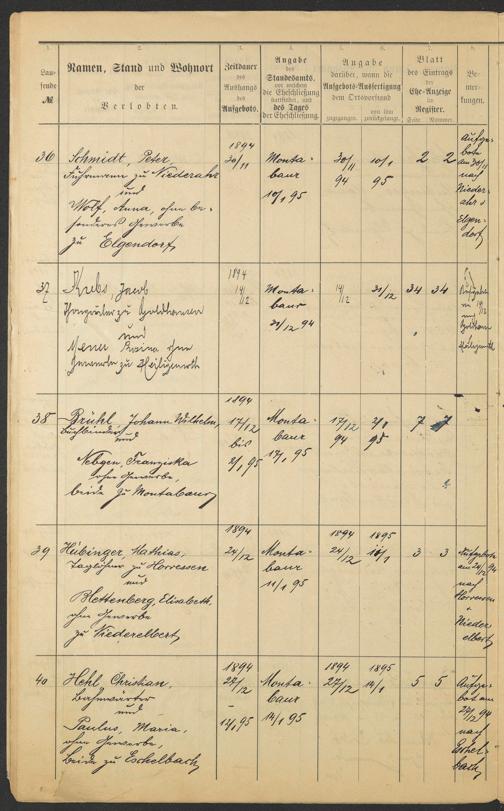 1. 2. 3. 4. 5. 6. 7. 8.
Lau-
fende
№
Namen, Stand und Wohnort
der
Verlobten.
Zeitdauer
des
Aushangs
des
Aufgebots.
Angabe
des
Standesamts,
vor welchem
die Eheschließung
stattfindet, und
des Tages
der Eheschließung.
Angabe
darüber, wann die
Aufgebots-Ausfertigung
dem Ortsvorstand
zugegangen.
von ihm
zurückgelangt.
Blatt
des Eintrags
der
Ehe-Anzeige
im
Register.
Seite Nummer.
Be-
mer-
kungen.
36
Schmidt, Peter,
Fuhrmann zu Niederahr
und
Wolf, Anna, ohne be-
sonderes Gewerbe
zu Elgendorf,
1894
30/11
Monta-
baur
10/1 95
30/11
94
10/1
95
2 2
Aufge-
bote
am 30/11
nach
Nieder-
ahr u
Elgen-
dorf,
37
Krebs Jacob
zu Goldhausen
und
ohne
Gewerbe zu Heiligenroth
1894
14/12
Monta-
baur
31/12 94
14/12
31/12
34 34
38
Brühl, Johann Wilhelm,
Buchbinder
und
Nebgen, Franziska
ohne Gewerbe,
beide zu Montabaur,
1894
17/12
bis
2/1 95
Monta-
baur
17/1 95
17/12
94
2/1
95
7 7
39
Hübinger, Mathias,
Taglöhner zu Horressen
und
Blettenberg, Elisabeth,
ohne Gewerbe
zu Niederelbert,
1894
24/12
Monta-
baur
11/1 95
1894
24/12
1895
3 3
Aufgebote
am 24/12 94
nach
Horressen
u
Nieder
elbert,
40
Hehl, Christian,
Bahnwärter
und
Paulus, Maria,
ohne Gewerbe,
beide zu Eschelbach,
1894
27/12
–
14/1 95
Monta-
baur
14/1 95
1894
27/12
1895
14/1
5 5
Aufge-
bot am
94
nach
Eschel-
bach,